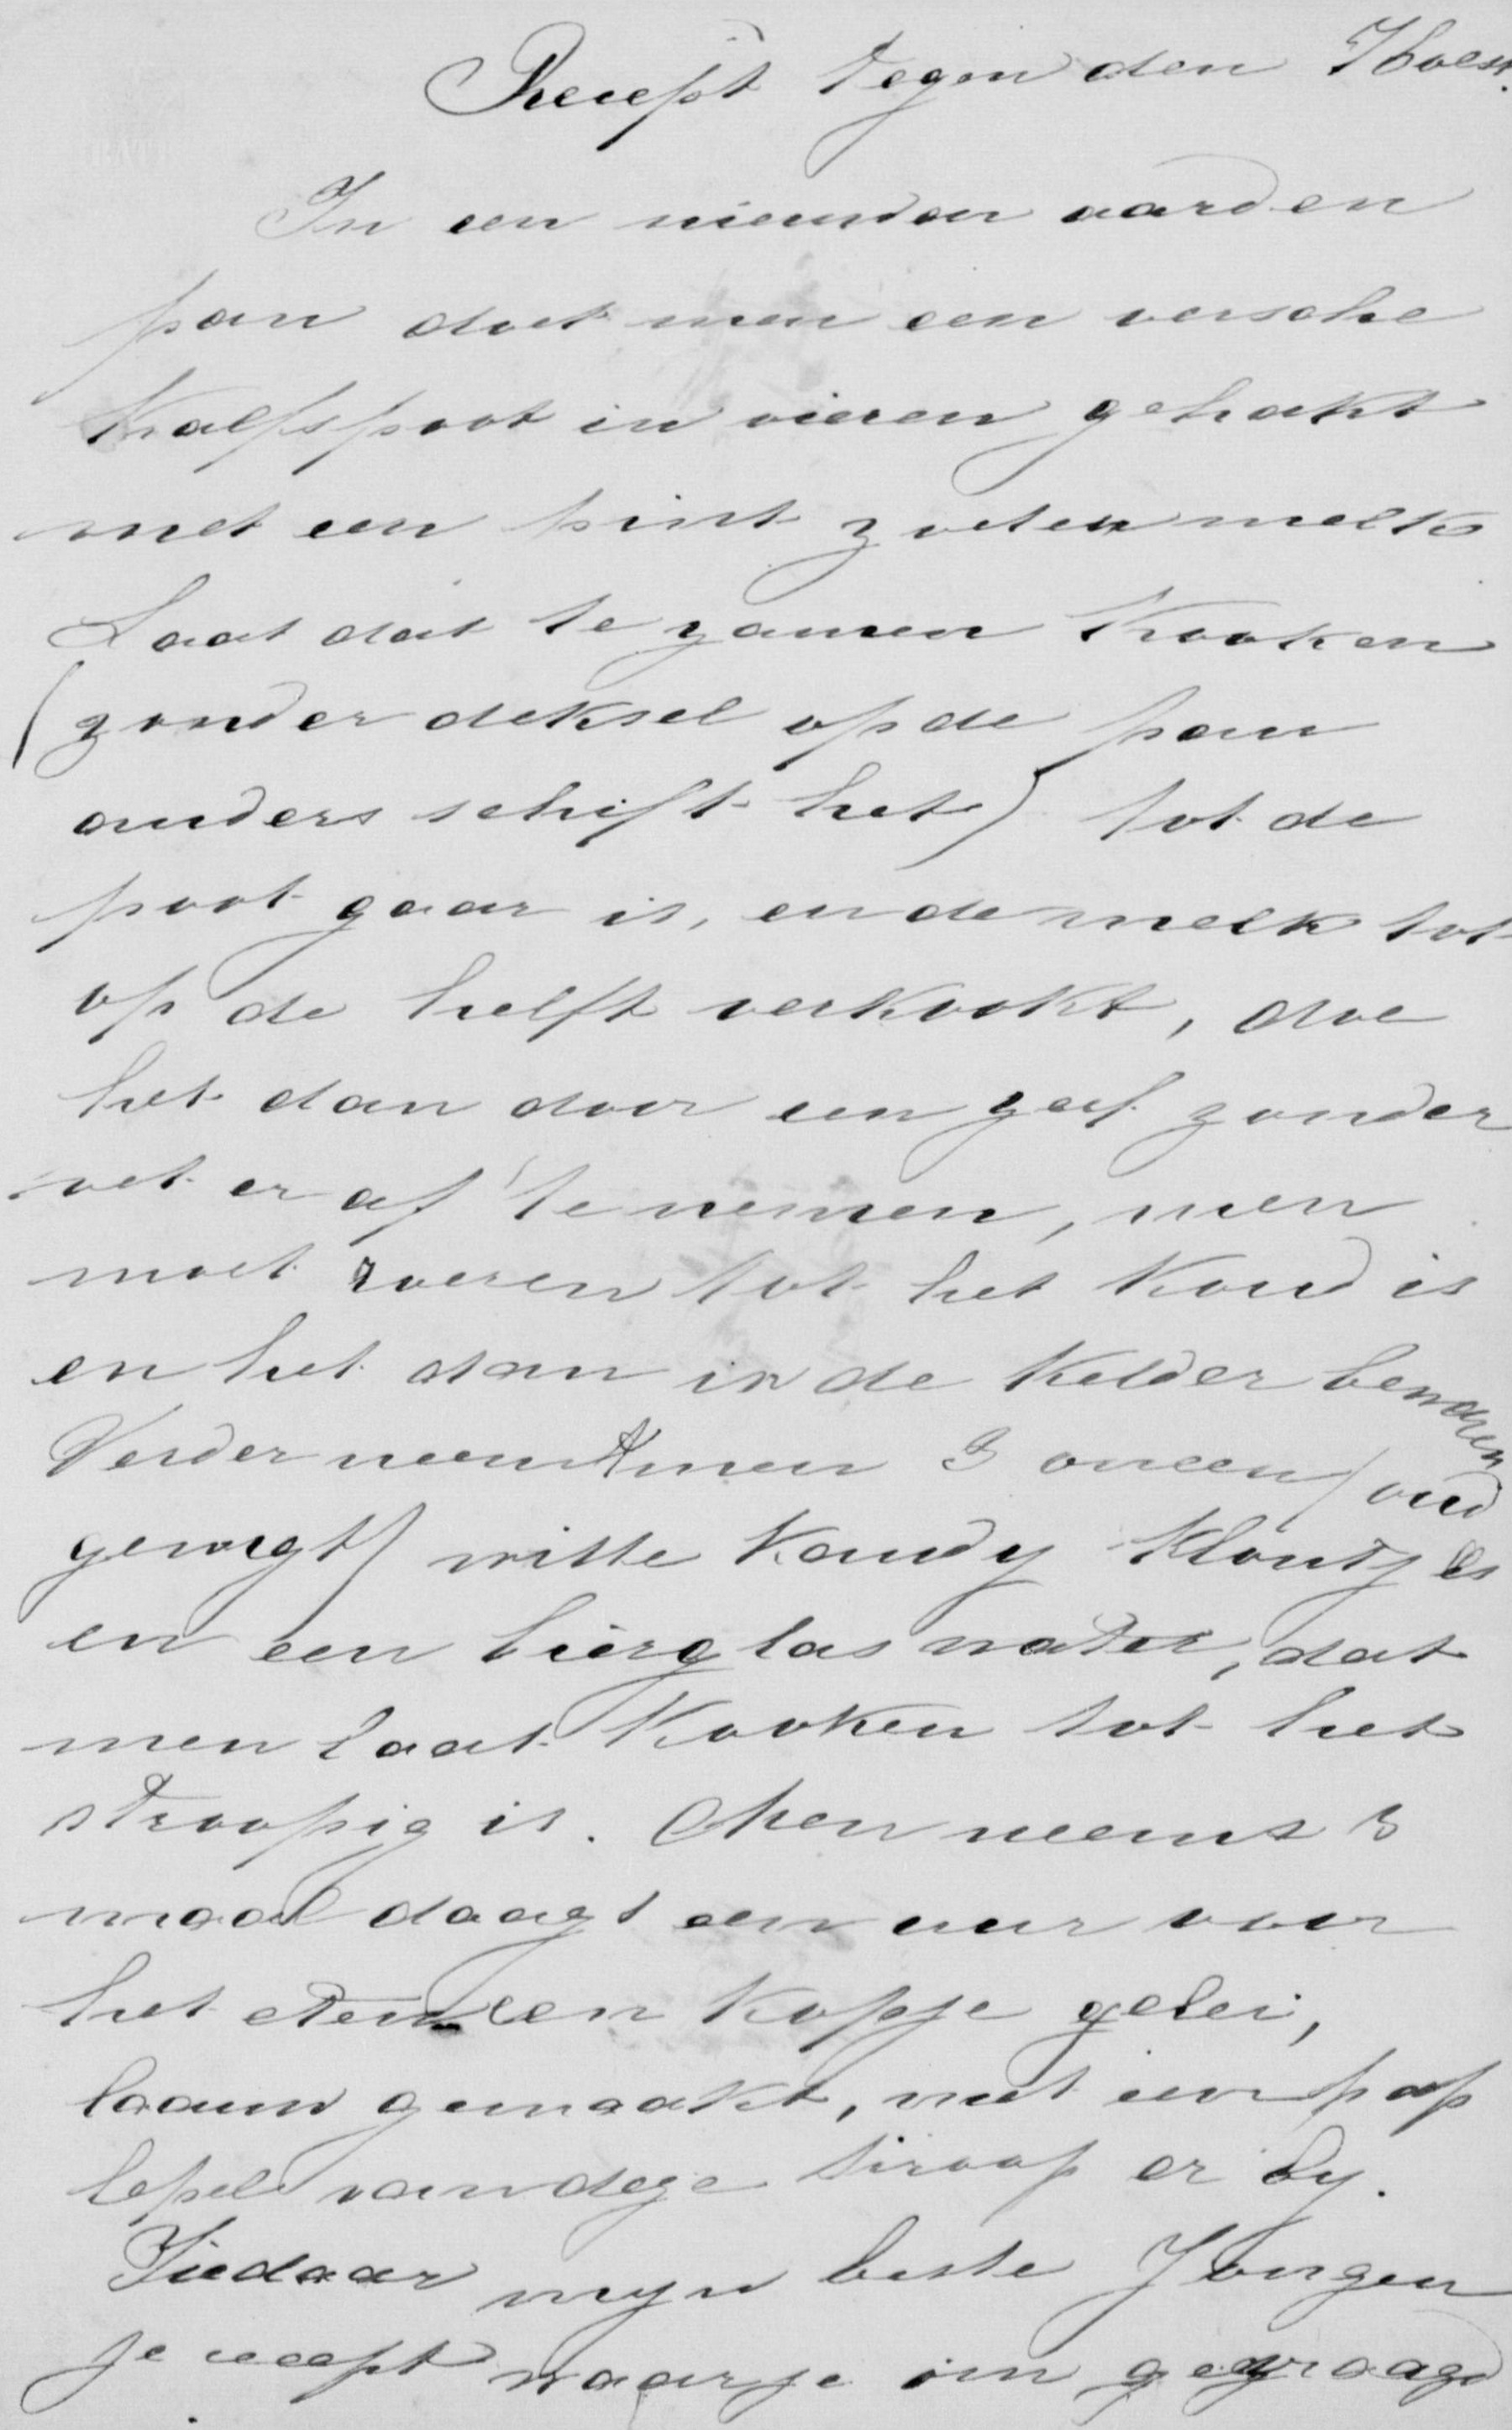 Recept tegen den Hoest.
In een nieuwen aarden
pan doet men een versche
Kalfspoot in vieren gehakt
met een pint zoeten melk
Laat dat te zamen Kooken
(zonder deksel op de pan
anders schift het) tot de
poot gaar is, en de melk tot
op de helft verkookt, doe
het dan door een zeef zonder
vet er af te nemen, men
moet roeren tot het Koud is
en het dan in de Kelder bewaren
Verder neemt men 3 oncen (oud
gewigt) witte Kandy Klontjes
en een bierglas water, dat
men laat Kooken tot het
stroopig is. Men neemt 3
maal daags een uur voor
het eten een Kopje gelei,
laauw gemaakt, met een pap
lepel van deze siroop er by.
Ziedaar myn beste Jongen
je recept waar je om gevraagd